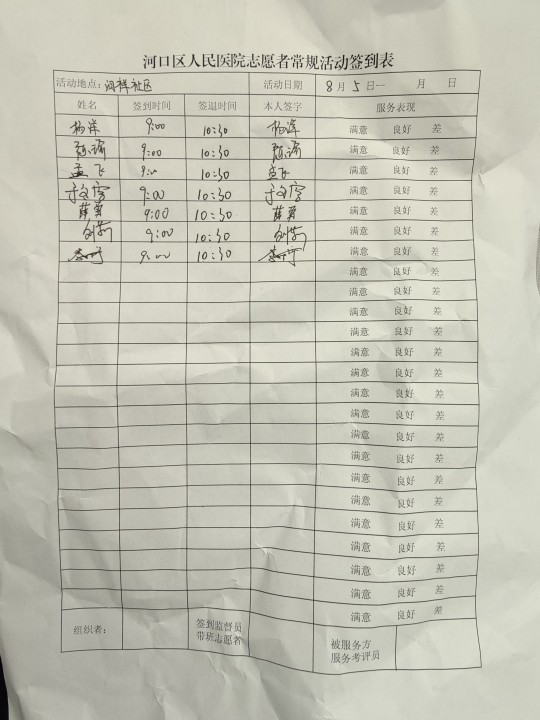 河口区人民医院志愿者常规活动签到表
活动地点: 社区 活动日期 8月5日一 月 日
姓名 签到时间 签退时间 本人签字 服务表现
杨洋 9:00 10:30 杨洋 满意 良好 差
9:00 10:30 满意 良好 差
孟飞 9:00 10:30 孟飞 满意 良好 差
9:00 10:30 满意 良好 差
9:00 10:30 满意 良好 差
9:00 10:30 满意 良好 差
9:00 10:30 满意 良好 差
满意 良好 差
满意 良好 差
满意 良好 差
满意 良好 差
满意 良好 差
满意 良好 差
满意 良好 差
满意 良好 差
满意 良好 差
满意 良好 差
满意 良好 差
满意 良好 差
满意 良好 差
满意 良好 差
满意 良好 差
满意 良好 差
满意 良好 差
组织者: 签到监督员 被服务方
带班志愿者 服务考评员